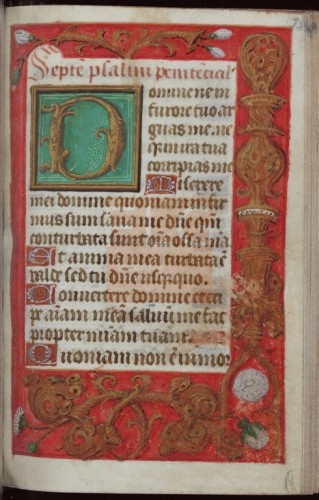 Septē psalmi penitēcial
Domine ne in
furore tuo ar
guas me. ne
q̄ in ira tua
corripias me
Miserere
mei domine quoniam in fir
mus sum sana me dñe qm̄
conturbata sunt oīa ossa mā
Et anima mea turbata ē
valde sed tu dñe usq̄quo.
Convertere domine et eri
pe aīam meā salvū me fac
propter miām tuam.
Quoniam non ē in mor